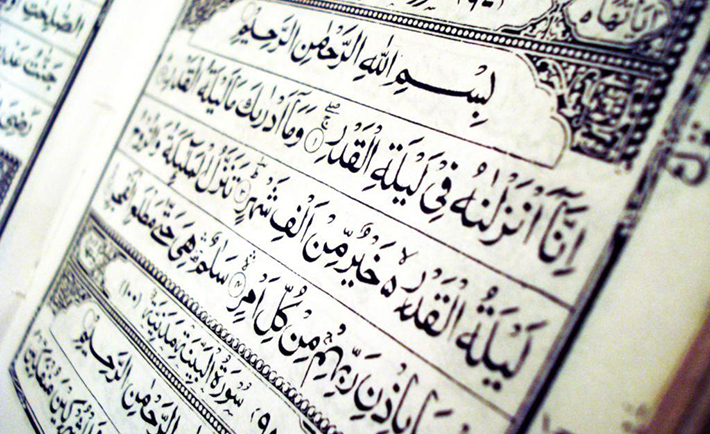 بِسْمِ اللّٰهِ الرَّحْمٰنِ الرَّحِيْمِ
اِنَّاۤ اَنْزَلْنٰهُ فِىْ لَيْلَةِ الْقَدْرِ ۚۖ ۝۱ وَمَاۤ اَدْرٰىكَ مَا لَيْلَةُ الْقَدْرِؕ
لَيْلَةُ الْقَدْرِ ۙ خَيْرٌ مِّنْ اَلْفِ شَهْرٍؕ ۝۳ تَنَزَّلُ الْمَلٰٓئِكَةُ وَالرُّوْحُ
بِاِذْنِ رَبِّهِمْۚ مِنْ كُلِّ اَمْرٍۛ ۝۴ سَلٰمٌۛ هِىَ حَتّٰى مَطْلَعِ الْفَجْرِ
۹۸ سُوْرَةُ الْبَيِّنَةِ مَدَنِيَّةٌ (۱۰۰)
الرَّحْمٰنِ الرَّحِيْمِ
الصّٰلِحٰتِ
جَنّٰتُ
رَضِىَ